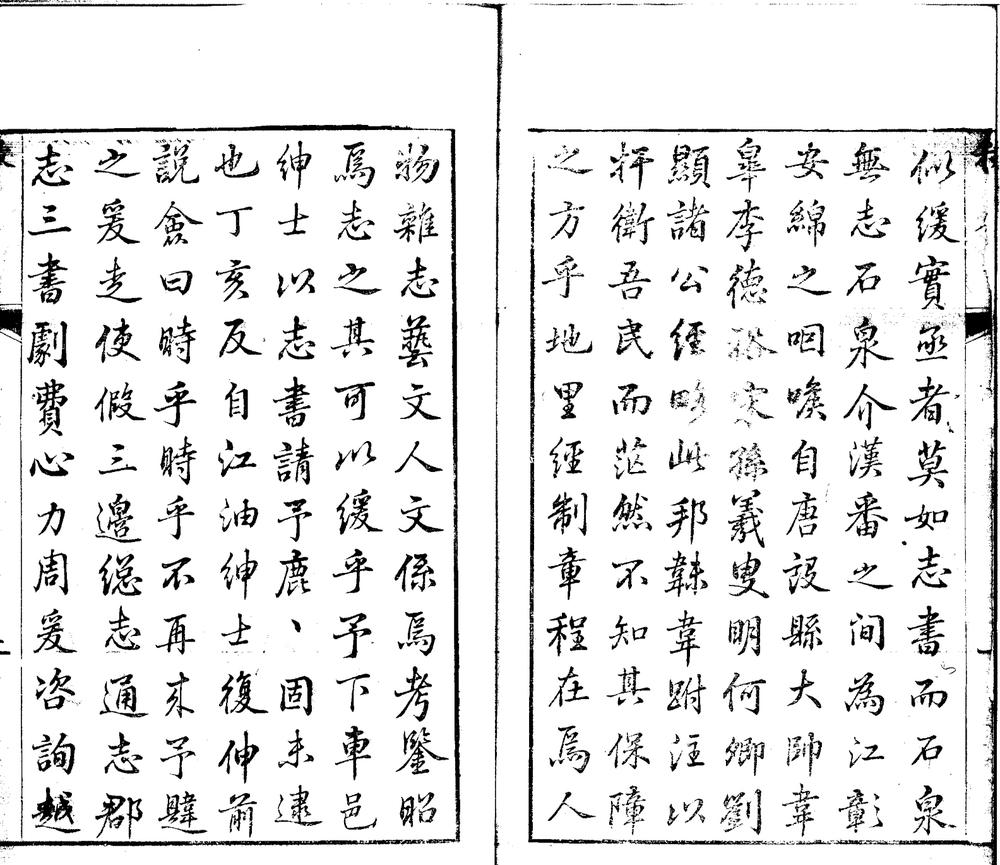 似緩實亟者莫如志書而石泉
無志石泉介漢番之間為江彰
安綿之咽喉自唐設縣大帥韋
皐李德裕宋孫羲叟明何卿劉
顯諸公經略此邦韎韋跗注以
扞衛吾民而茫然不知其保障
之方乎地里經制章程在焉人
物雜志藝文人文係焉考鑒昭
焉志之其可以緩乎予下車邑
紳士以志書請予鹿丶固未逮
也丁亥反自江油紳士復伸前
說僉曰時乎時乎不再来予韙
之爰走使假三邊總志通志郡
志三書劇費心力周爰咨詢越